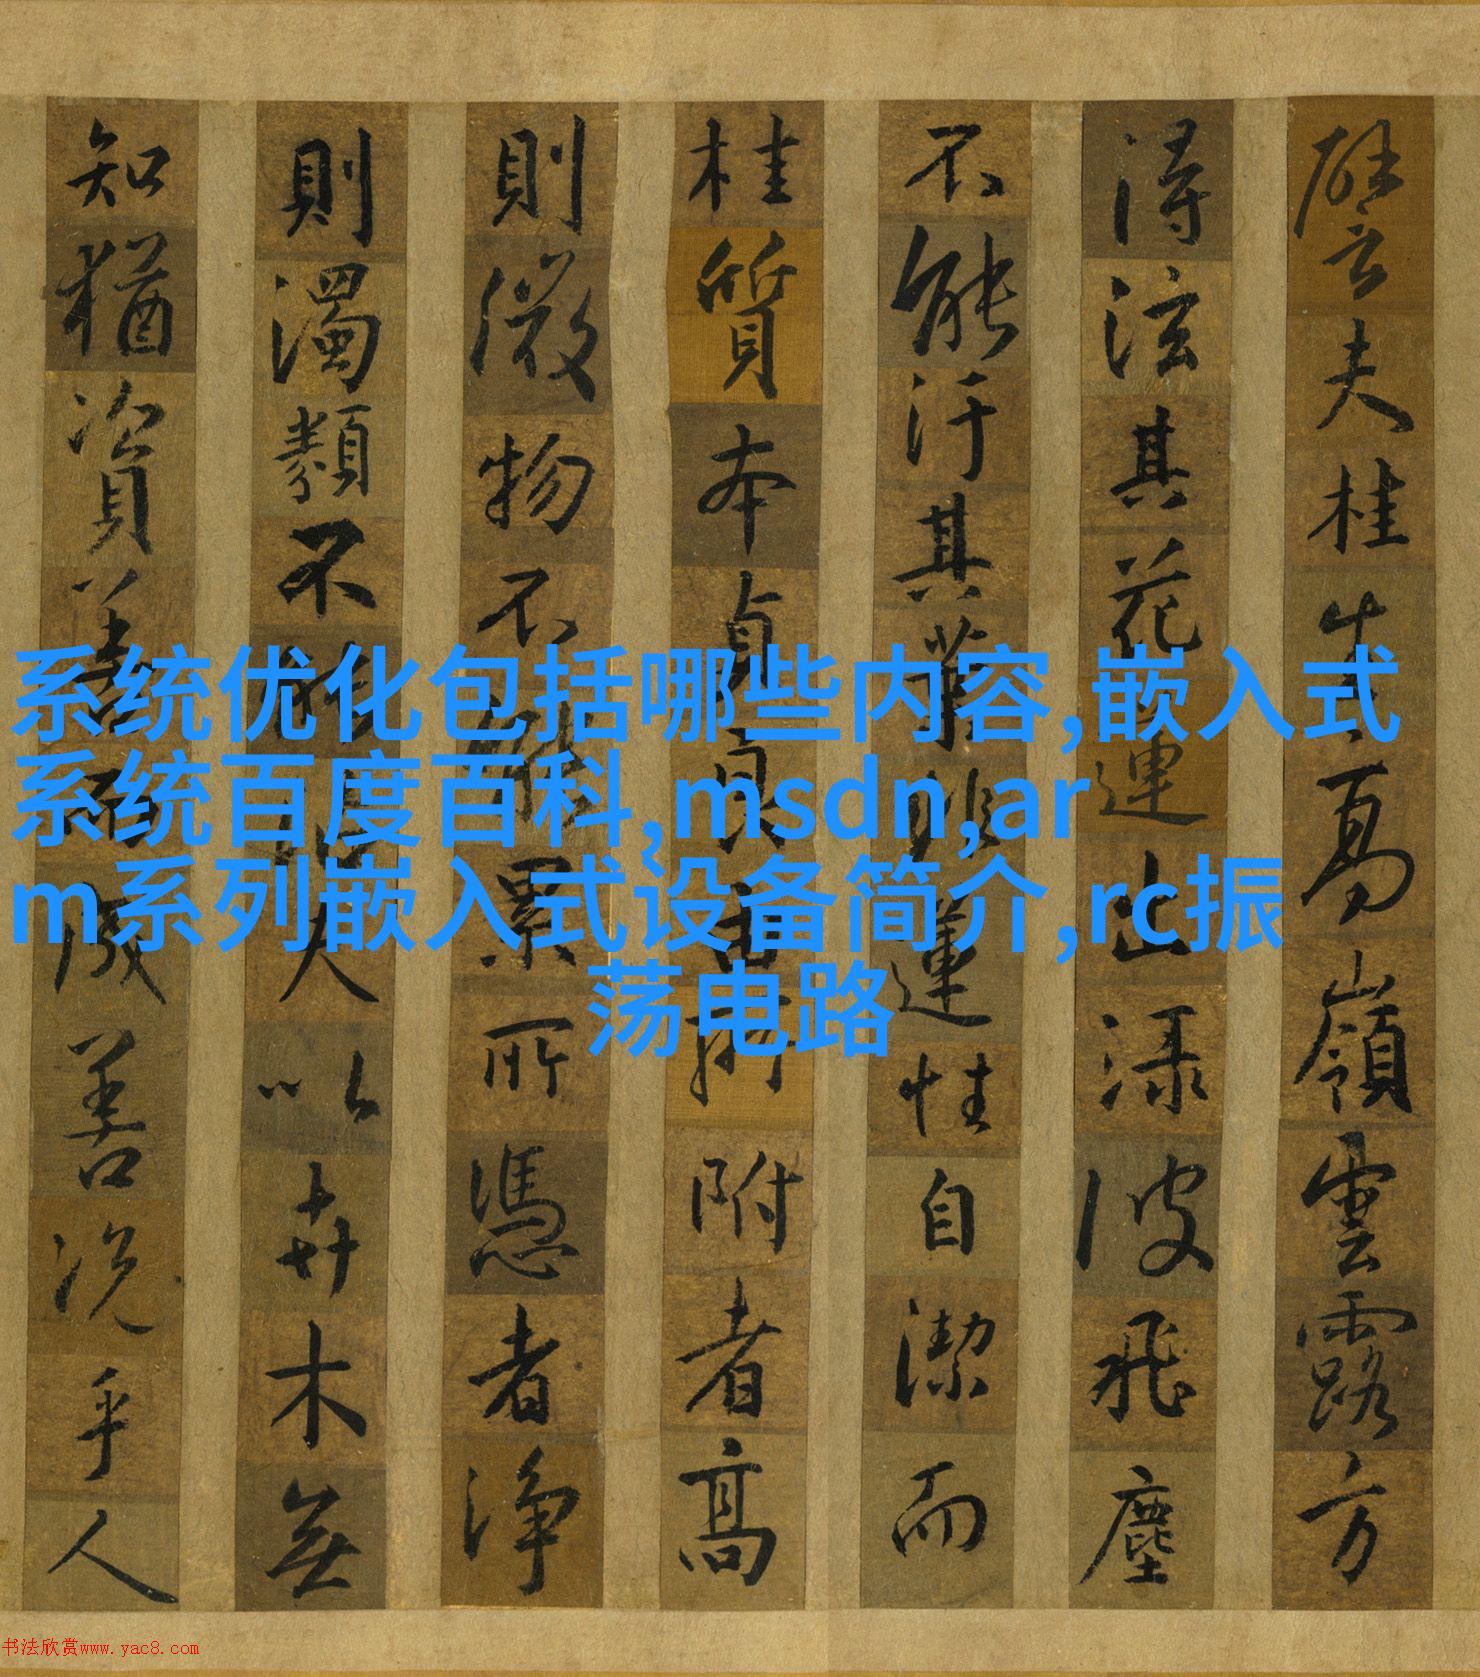 譬夫桂生高嶺雲露方
得泫其花蓮出渌波飛塵
不能汙其葉非蓮性自潔而
桂質本貞良由所附者高
則微物不能累所憑者淨
則濁類不能沾夫以卉木無
知猶資善而成善況乎人
系统优化包括哪些内容,嵌入式
系统百度百科,msdn,ar
m系列嵌入式设备简介,rc振
荡电路
书法欣赏www.yac8.com